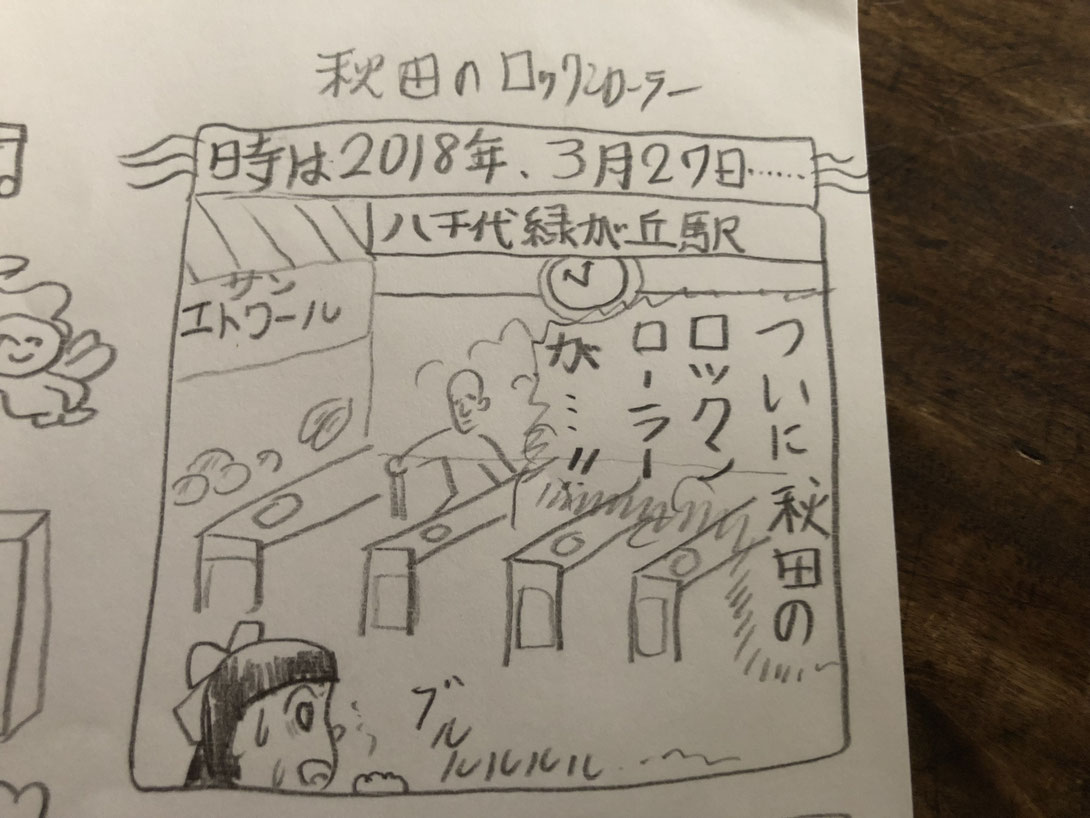 秋田のロックンローラー
時は2018年、3月27日……
八千代緑が丘駅
サン
エトワール
ついに秋田の
ロックン
ローラー
が……!!
ブル
ルルルルル…